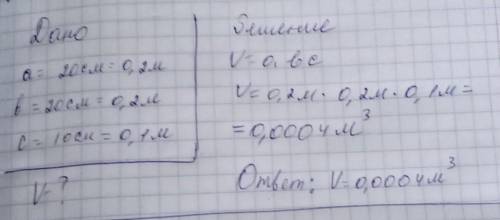 Дано
a = 20см = 0,2м
b = 20см = 0,2м
c = 10см = 0,1м
V - ?
Решение
V = a.b.c
V = 0,2м · 0,2м · 0,1м =
= 0,0004м³
Ответ: V = 0,0004м³